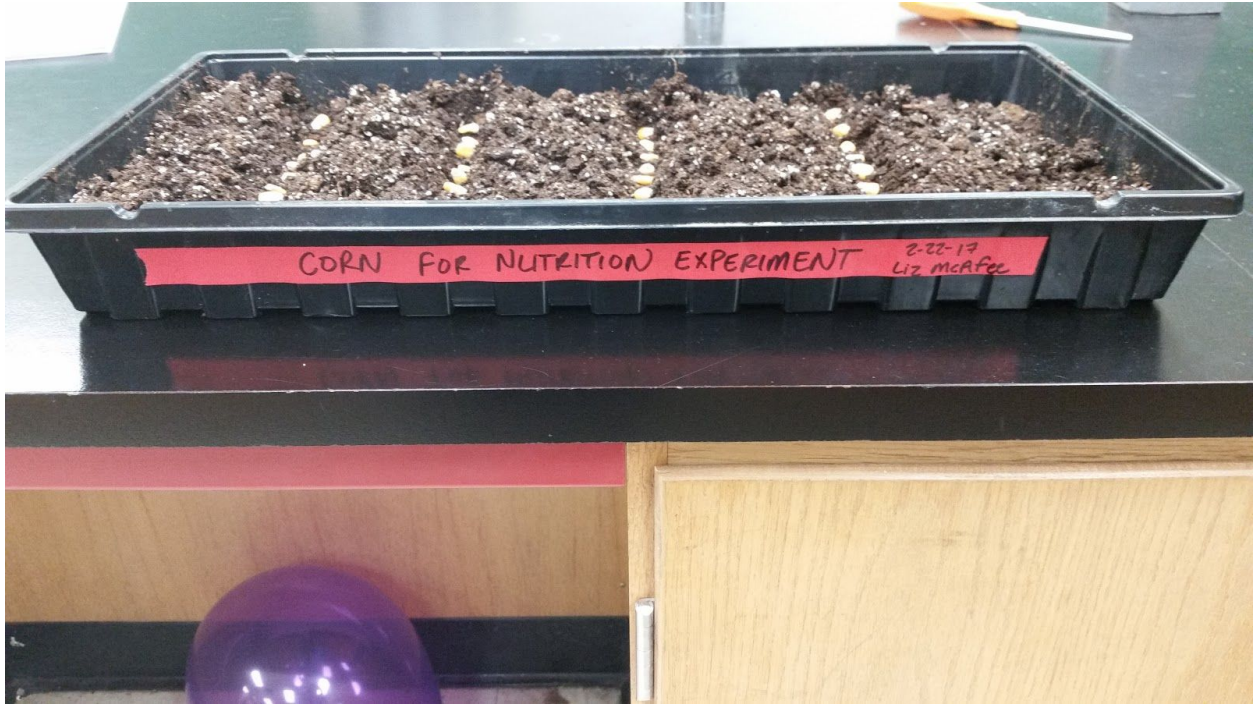 CORN FOR NUTRITION EXPERIMENT
2-22-17
Liz McAfee